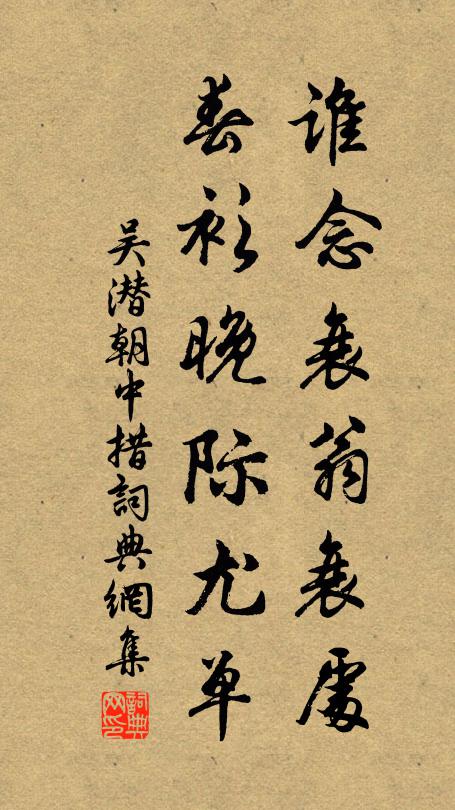 谁念衰翁衰处
春衫晚际尤单
吴潜朝中措詞典網集
詞典网印